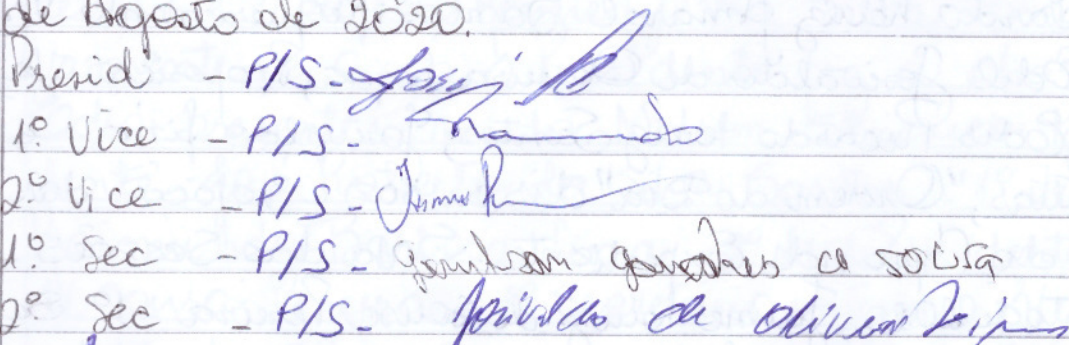 de Agosto de 2020.
Presid - P/S - José
1º. Vice - P/S -
2º Vice - P/S -
1º. Sec - P/S - Genilson Gonzales d SOUSA
2º Sec - P/S - Josivaldo de Oliveira